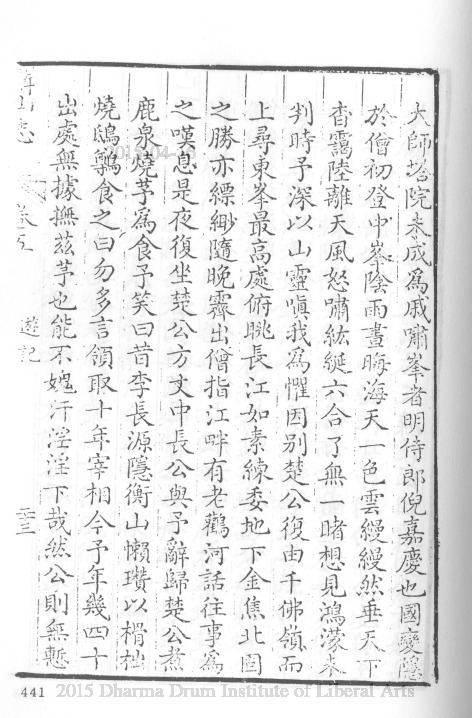 大師塔院未成為戚嘯峯者明侍郎倪嘉慶也國變隱
於僧初登中峯陰雨晝晦海天一色雲縵縵然垂天下
杳靄陸離天風怒嘯紘綖六合了無一睹想見鴻濛未
判時予深以山靈嗔我為懼因別楚公復由千佛嶺而
上尋東峯最高處俯眺長江如素練委地下金焦北固
之勝亦縹緲隨晚霽出僧指江畔有老鸛河話往事為
之嘆息是夜復坐楚公方丈中長公與予辭歸楚公煮
鹿泉燒芋為食予笑曰昔李長源隱衡山懶瓚以榾柮
燒鴟鴞食之曰勿多言領取十年宰相今予年幾四十
出處無據撫茲芋也能不媿汗淫淫下哉然公則無慙
山志 卷五 遊記 三三
441 2015 Dharma Drum Institute of Liberal Arts